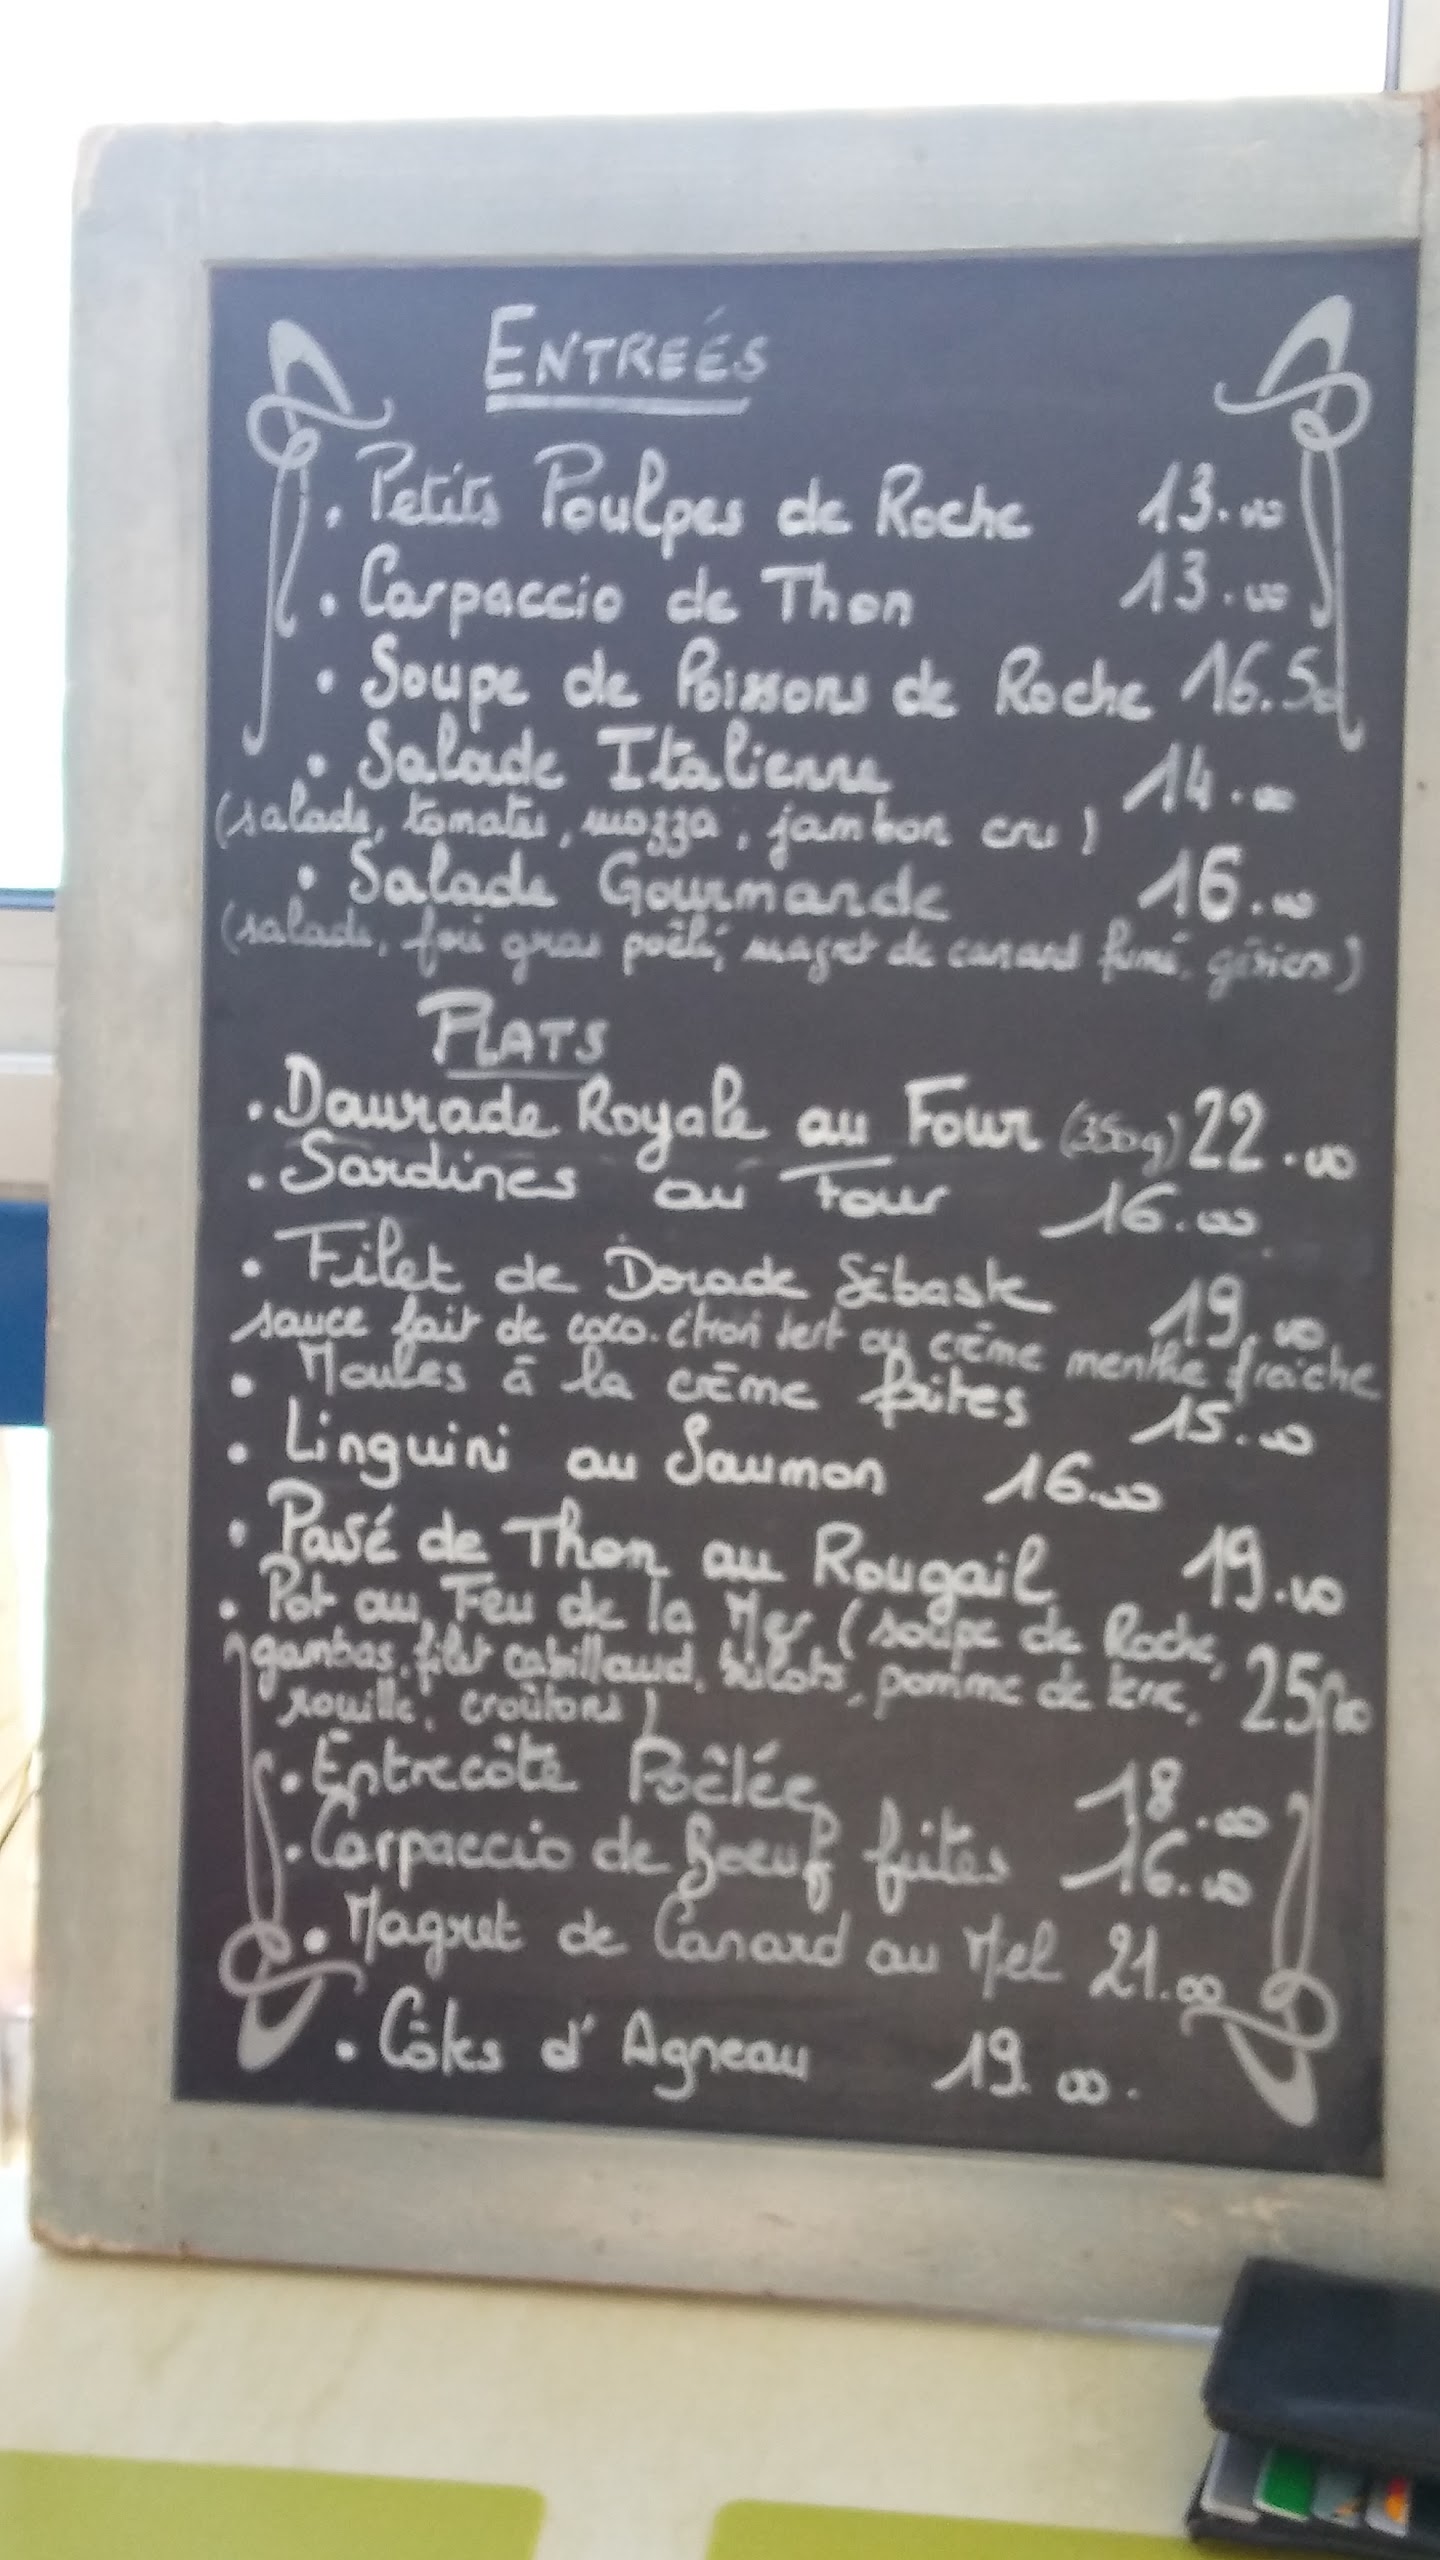 ENTREÉS
. Petits Poulpes de Roche 13.00
. Carpaccio de Thon 13.00
. Soupe de Poissons de Roche 16.50
. Salade Italienne 14.00
(salade, tomates, mozza, jambon cru)
. Salade Gourmande 16.00
(salade, foie gras poêlé, magret de canard fumé, gésiers)
PLATS
. Daurade Royale au Four (350g) 22.00
. Sardines au Four 16.00
. Filet de Dorade Sébaste 19.00
sauce lait de coco. citron vert ou crème menthe fraîche
. Moules à la crème frites 15.00
. Linguini au Saumon 16.00
. Pavé de Thon au Rougail 19.00
. Pot au Feu de la Mer (soupe de Roche,
gambas, filet cabillaud, bulots, pomme de terre, 25.00
rouille, croûtons)
. Entrecôte Poêlée 18.00
. Carpaccio de Boeuf frites 16.00
. Magret de Canard au Miel 21.00
. Côtes d'Agneau 19.00.